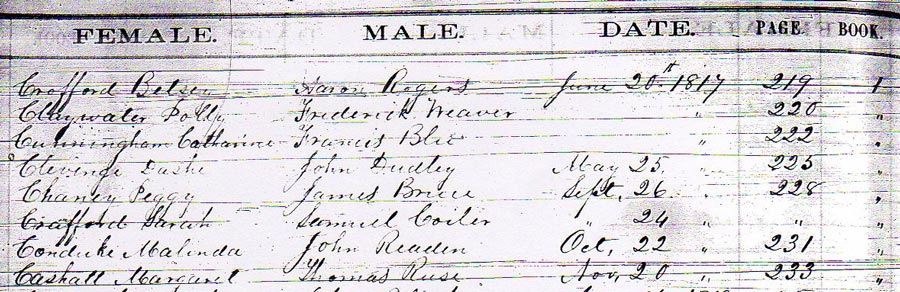 FEMALE. MALE. DATE. PAGE. BOOK.
Crafford Betsey Aaron Rogers June 20th 1817 219 1
Claywater Polly Frederick Weaver " 220 "
Cunningham Catharine Francis Blie " 222 "
Clevenge John Dudley May 25 " 225 "
Chaney Peggy James Brice Sept, 26 " 228 "
Crafford Sarah Samuel Coiler " 24 " " "
Conduke Malinda John Readen Oct, 22 " 231 "
Cashatt Margaret Thomas Ruse Nov, 20 " 233 "